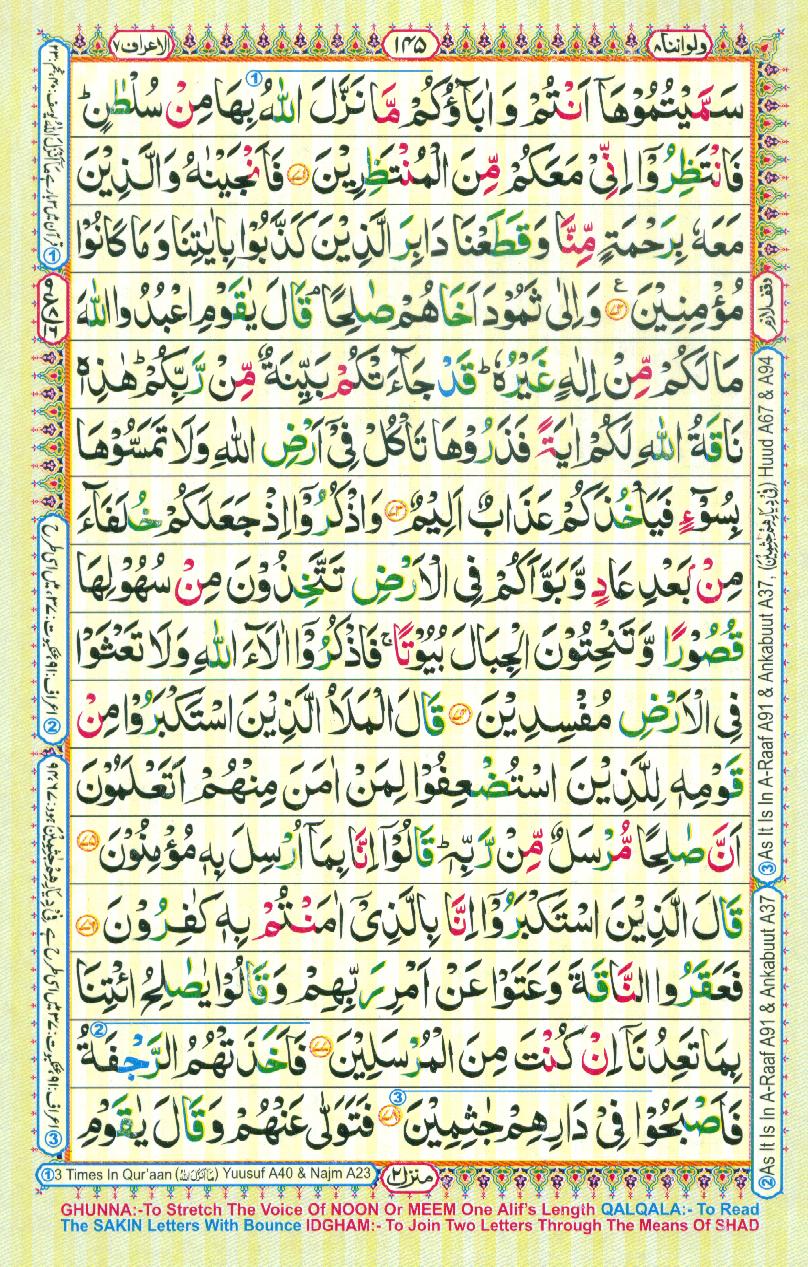 ولواننا ٨
١٤٥
الاعراف ٧
سَمَّيْتُمُوْهَاۤ اَنْتُمْ وَ اٰبَآؤُكُمْ مَّا نَزَّلَ اللّٰهُ بِهَا مِنْ سُلْطٰنٍؕ
فَانْتَظِرُوْۤا اِنِّىْ مَعَكُمْ مِّنَ الْمُنْتَظِرِيْنَ ﴿٧١﴾ فَاَنْجَيْنٰهُ وَالَّذِيْنَ
مَعَهٗ بِرَحْمَةٍ مِّنَّا وَقَطَعْنَا دَابِرَ الَّذِيْنَ كَذَّبُوْا بِاٰيٰتِنَا وَمَا كَانُوْا
مُؤْمِنِيْنَ ﴿٧٢﴾ ع وَاِلٰى ثَمُوْدَ اَخَاهُمْ صٰلِحًاۘ قَالَ يٰقَوْمِ اعْبُدُوا اللّٰهَ
مَا لَكُمْ مِّنْ اِلٰهٍ غَيْرُهٗؕ قَدْ جَآءَتْكُمْ بَيِّنَةٌ مِّنْ رَّبِّكُمْؕ هٰذِهٖ
نَاقَةُ اللّٰهِ لَكُمْ اٰيَةً فَذَرُوْهَا تَاْكُلْ فِىْۤ اَرْضِ اللّٰهِ وَلَا تَمَسُّوْهَا
بِسُوْٓءٍ فَيَاْخُذَكُمْ عَذَابٌ اَلِيْمٌ ﴿٧٣﴾ وَاذْكُرُوْۤا اِذْ جَعَلَكُمْ خُلَفَآءَ
مِنْۢ بَعْدِ عَادٍ وَّبَوَّاَكُمْ فِى الْاَرْضِ تَتَّخِذُوْنَ مِنْ سُهُوْلِهَا
قُصُوْرًا وَّتَنْحِتُوْنَ الْجِبَالَ بُيُوْتًاۚ فَاذْكُرُوْۤا اٰلَآءَ اللّٰهِ وَلَا تَعْثَوْا
فِى الْاَرْضِ مُفْسِدِيْنَ ﴿٧٤﴾ قَالَ الْمَلَاُ الَّذِيْنَ اسْتَكْبَرُوْا مِنْ
قَوْمِهٖ لِلَّذِيْنَ اسْتُضْعِفُوْا لِمَنْ اٰمَنَ مِنْهُمْ اَتَعْلَمُوْنَ
اَنَّ صٰلِحًا مُّرْسَلٌ مِّنْ رَّبِّهٖؕ قَالُوْۤا اِنَّا بِمَاۤ اُرْسِلَ بِهٖ مُؤْمِنُوْنَ ﴿٧٥﴾
قَالَ الَّذِيْنَ اسْتَكْبَرُوْۤا اِنَّا بِالَّذِىْۤ اٰمَنْتُمْ بِهٖ كٰفِرُوْنَ ﴿٧٦﴾
فَعَقَرُوا النَّاقَةَ وَعَتَوْا عَنْ اَمْرِ رَبِّهِمْ وَقَالُوْا يٰصٰلِحُ ائْتِنَا
بِمَا تَعِدُنَاۤ اِنْ كُنْتَ مِنَ الْمُرْسَلِيْنَ ﴿٧٧﴾ فَاَخَذَتْهُمُ الرَّجْفَةُ
فَاَصْبَحُوْا فِىْ دَارِهِمْ جٰثِمِيْنَ ﴿٧٨﴾ فَتَوَلّٰى عَنْهُمْ وَقَالَ يٰقَوْمِ
وقف لازم
③ As It Is In A-Raaf A91 & Ankabuut A37, (فِىْ دِيَارِهِمْ جٰثِمِيْنَ) Huud A67 & A94
② As It Is In A-Raaf A91 & Ankabuut A37
① 3 Times In Qur'aan (مَا اَنْزَلَ اللّٰهُ) Yuusuf A40 & Najm A23
منزل ٢
GHUNNA:-To Stretch The Voice Of NOON Or MEEM One Alif's Length QALQALA:- To Read
The SAKIN Letters With Bounce IDGHAM:- To Join Two Letters Through The Means Of SHAD